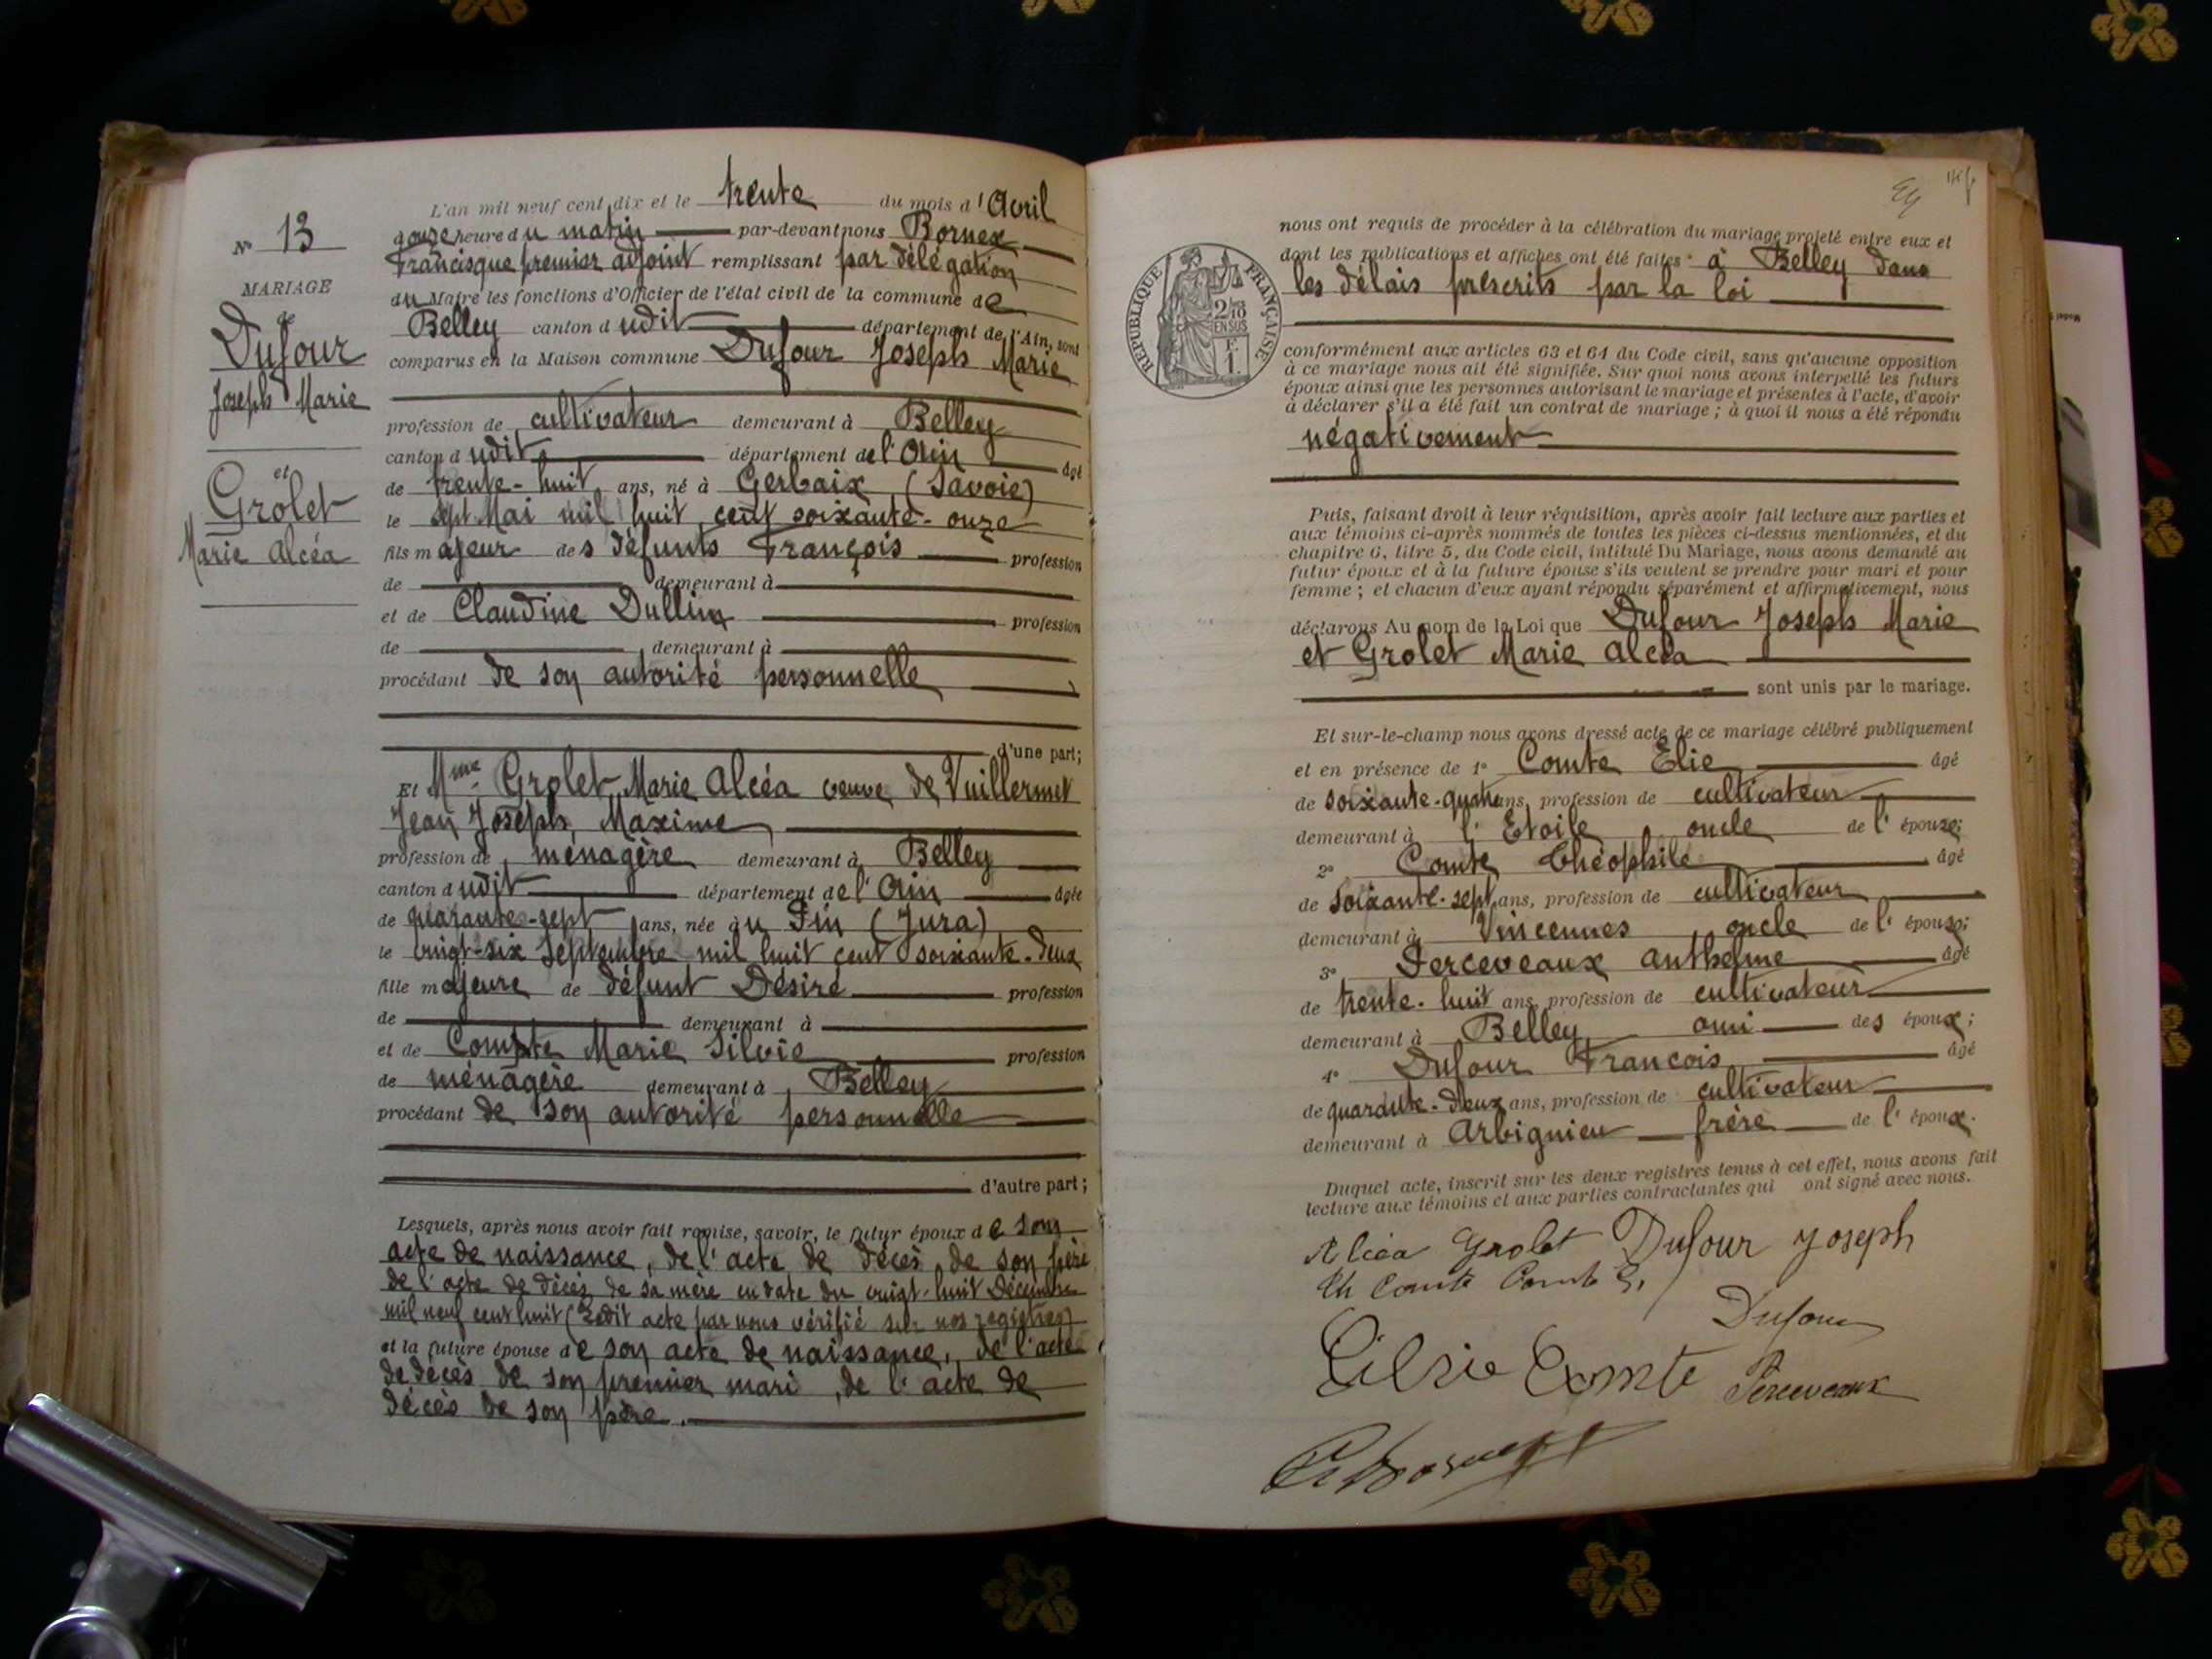 N° 13
MARIAGE
de
Dufour
Joseph Marie
et
Grolet
Marie Alcéa
L'an mil neuf cent dix et le trente du mois d'Avril
onze heure du matin par-devant nous Bornex
Francisque premier adjoint remplissant par délégation
du Maire les fonctions d'Officier de l'état civil de la commune de
Belley canton dudit département de l'Ain, sont
comparus en la Maison commune Dufour Joseph Marie
profession de cultivateur demeurant à Belley
canton dudit département de l'Ain âgé
de trente-huit ans, né à Gerbaix (Savoie)
le sept Mai mil huit cent soixante-onze
fils majeur des défunts François profession
de demeurant à
et de Claudine Dullin profession
de demeurant à
procédant de son autorité personnelle
d'une part;
Et Mme Grolet Marie Alcéa veuve de Vuillermet
Jean Joseph Maxime
profession de ménagère demeurant à Belley
canton dudit département de l'Ain âgée
de quarante-sept ans, née à u Pin (Jura)
le vingt-six Septembre mil huit cent soixante-deux
fille majeure de défunt Désiré profession
de demeurant à
et de Comte Marie Silvie profession
de ménagère demeurant à Belley
procédant de son autorité personnelle
d'autre part;
Lesquels, après nous avoir fait remise, savoir, le futur époux de son
acte de naissance, de l'acte de décès de son père
de l'acte de décès de sa mère en date du vingt-huit Décembre
mil neuf cent huit (Ledit acte par nous vérifié sur nos registres)
et la future épouse de son acte de naissance, de l'acte
de décès de son premier mari, de l'acte de
décès de son père.
RÉPUBLIQUE FRANÇAISE
2/10
EN SUS
F.
1.
nous ont requis de procéder à la célébration du mariage projeté entre eux et
dont les publications et affiches ont été faites à Belley dans
les délais prescrits par la loi
conformément aux articles 63 et 64 du Code civil, sans qu'aucune opposition
à ce mariage nous ait été signifiée. Sur quoi nous avons interpellé les futurs
époux ainsi que les personnes autorisant le mariage et présentes à l'acte, d'avoir
à déclarer s'il a été fait un contrat de mariage; à quoi il nous a été répondu
négativement
Puis, faisant droit à leur réquisition, après avoir fait lecture aux parties et
aux témoins ci-après nommés de toutes les pièces ci-dessus mentionnées, et du
chapitre 6, titre 5, du Code civil, intitulé Du Mariage, nous avons demandé au
futur époux et à la future épouse s'ils veulent se prendre pour mari et pour
femme; et chacun d'eux ayant répondu séparément et affirmativement, nous
déclarons Au nom de la Loi que Dufour Joseph Marie
et Grolet Marie Alcéa
sont unis par le mariage.
Et sur-le-champ nous avons dressé acte de ce mariage célébré publiquement
et en présence de 1° Comte Elie âgé
de soixante-quatre ans, profession de cultivateur
demeurant à l'Etoile oncle de l'épouse;
2° Comte Théophile âgé
de soixante-sept ans, profession de cultivateur
demeurant à Vincennes oncle de l'épouse;
3° Perceveaux Anthelme âgé
de trente-huit ans, profession de cultivateur
demeurant à Belley ami des époux;
4° Dufour François âgé
de quarante-deux ans, profession de cultivateur
demeurant à Arbignieu frère de l'époux.
Duquel acte, inscrit sur les deux registres tenus à cet effet, nous avons fait
lecture aux témoins et aux parties contractantes qui ont signé avec nous.
Alcéa Grolet Dufour Joseph
Th Comte Comte E.
Dufour
Silvie Comte Perceveaux